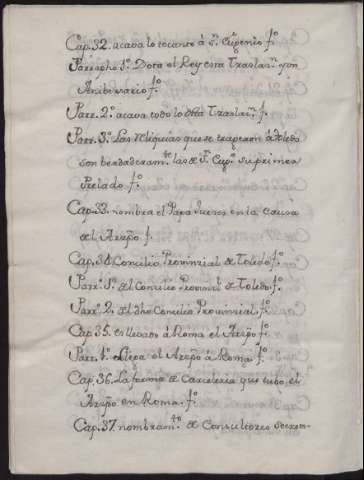 Cap. 32. acava lo tocante á Sn. Eugenio fo.
Parrapho 1o. Dota el Rey esta Traslasn. y un
Aniversario fo.
Parr. 2o. acava todo lo dha Traslasn. fo.
Parr. 3o. Las Reliquias que se traxeron á Toledo
son berdaderamte. las de Sn. Eugo. su primer
Prelado fo.
Cap. 33. nombra el Papa Jueces en la causa
del Arzpo. fo.
Cap. 34. Concilio Provinzial de Toledo fo.
Parro. 1o. del Concilio Provinzl. de Toledo fo.
Parro. 2. del dho Concilio Provinzial fo.
Cap. 35. es llevado á Roma el Arzpo. fo.
Parr. 1o. Llega el Arzpo. á Roma. fo.
Cap. 36. La forma de Carceleria que tubo el
Arzpo. en Roma. fo.
Cap. 37. nombramto. de Consultores